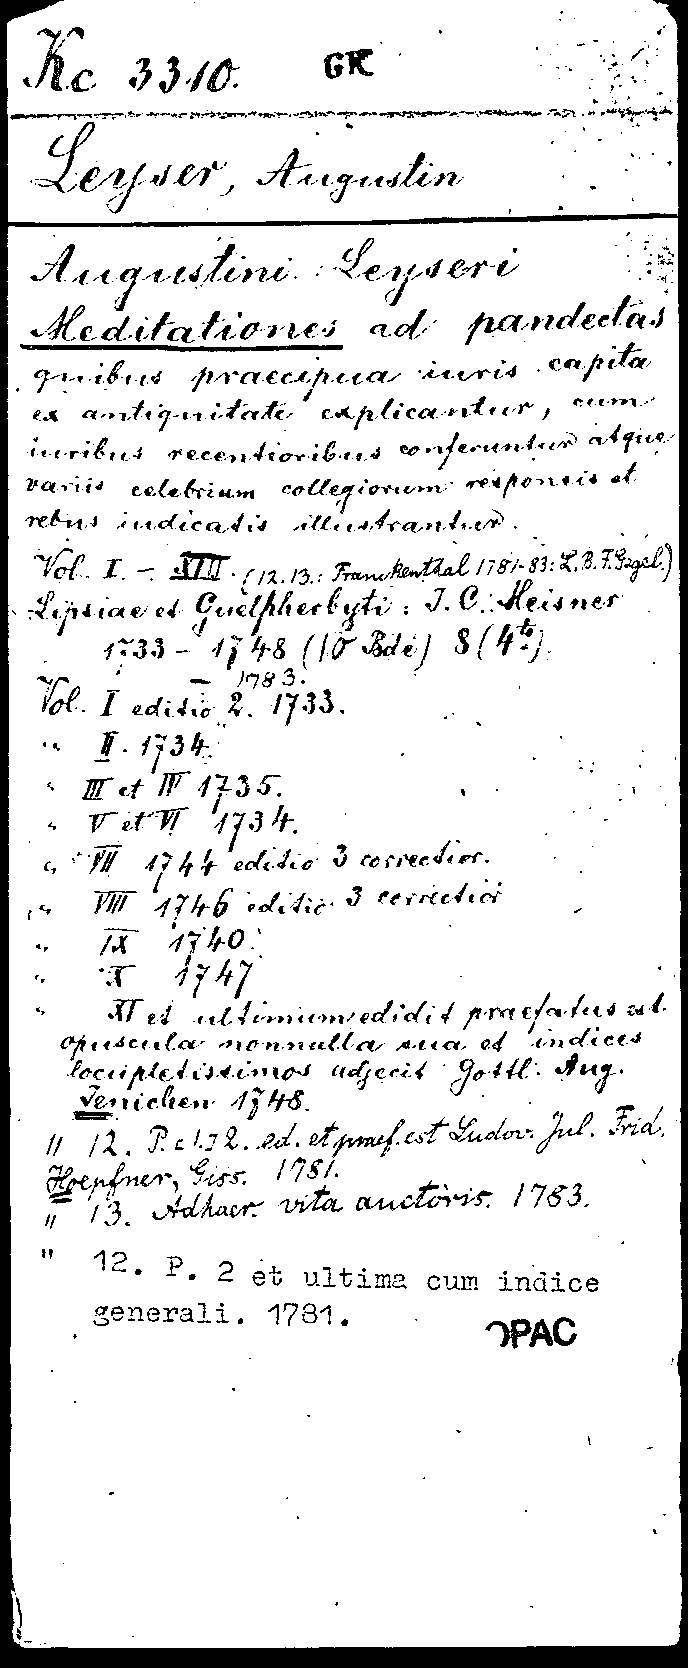 Kc 3310. GK
Leyser, Augustin
Augustini Leyseri
Meditationes ad pandectas
quibus praecipua iuris capita
ex antiquitate explicantur, cum
iuribus recentioribus conferuntur atque
variis celebrium collegiorum responsis et
rebus iudicatis illustrantur.
Vol. I. – XIII. (12.13.: Franckenthal 1781-83: L.B.F. Gegel.)
Lipsiae et Guelpherbyti: J. C. Meisner
1733 – 1748 (10 Bde) 8 (4to).
– 1783.
Vol. I editio 2. 1733.
" II. 1734.
" III et IV 1735.
" V et VI 1734.
" VII 1744 editio 3 correctior.
" VIII 1746 editio 3 correctior
" IX 1740.
" X 1747
" XI et ultimum edidit praefatus est
opuscula nonnulla sua et indices
locupletissimos adjecit Gottl. Aug.
Jenichen 1748.
" 12. P. 2. ed. et praef. est Ludov. Jul. Frid.
Hoepfner, Giss. 1781.
" 13. Adhaer. vita auctoris. 1783.
" 12. P. 2 et ultima cum indice
generali. 1781.
OPAC